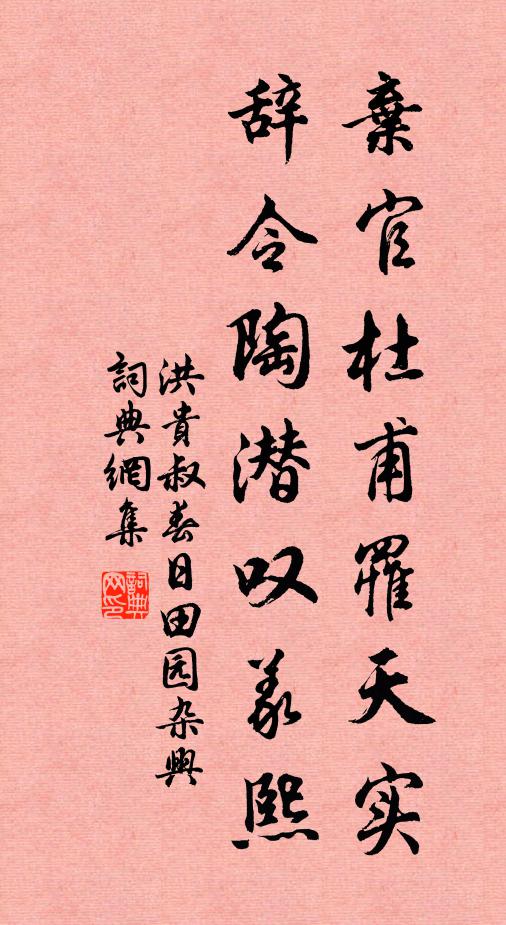 棄官杜甫罹天实
辞令陶潜叹义熙
洪貴叔春日田园杂興
詞典網集
詞典网印